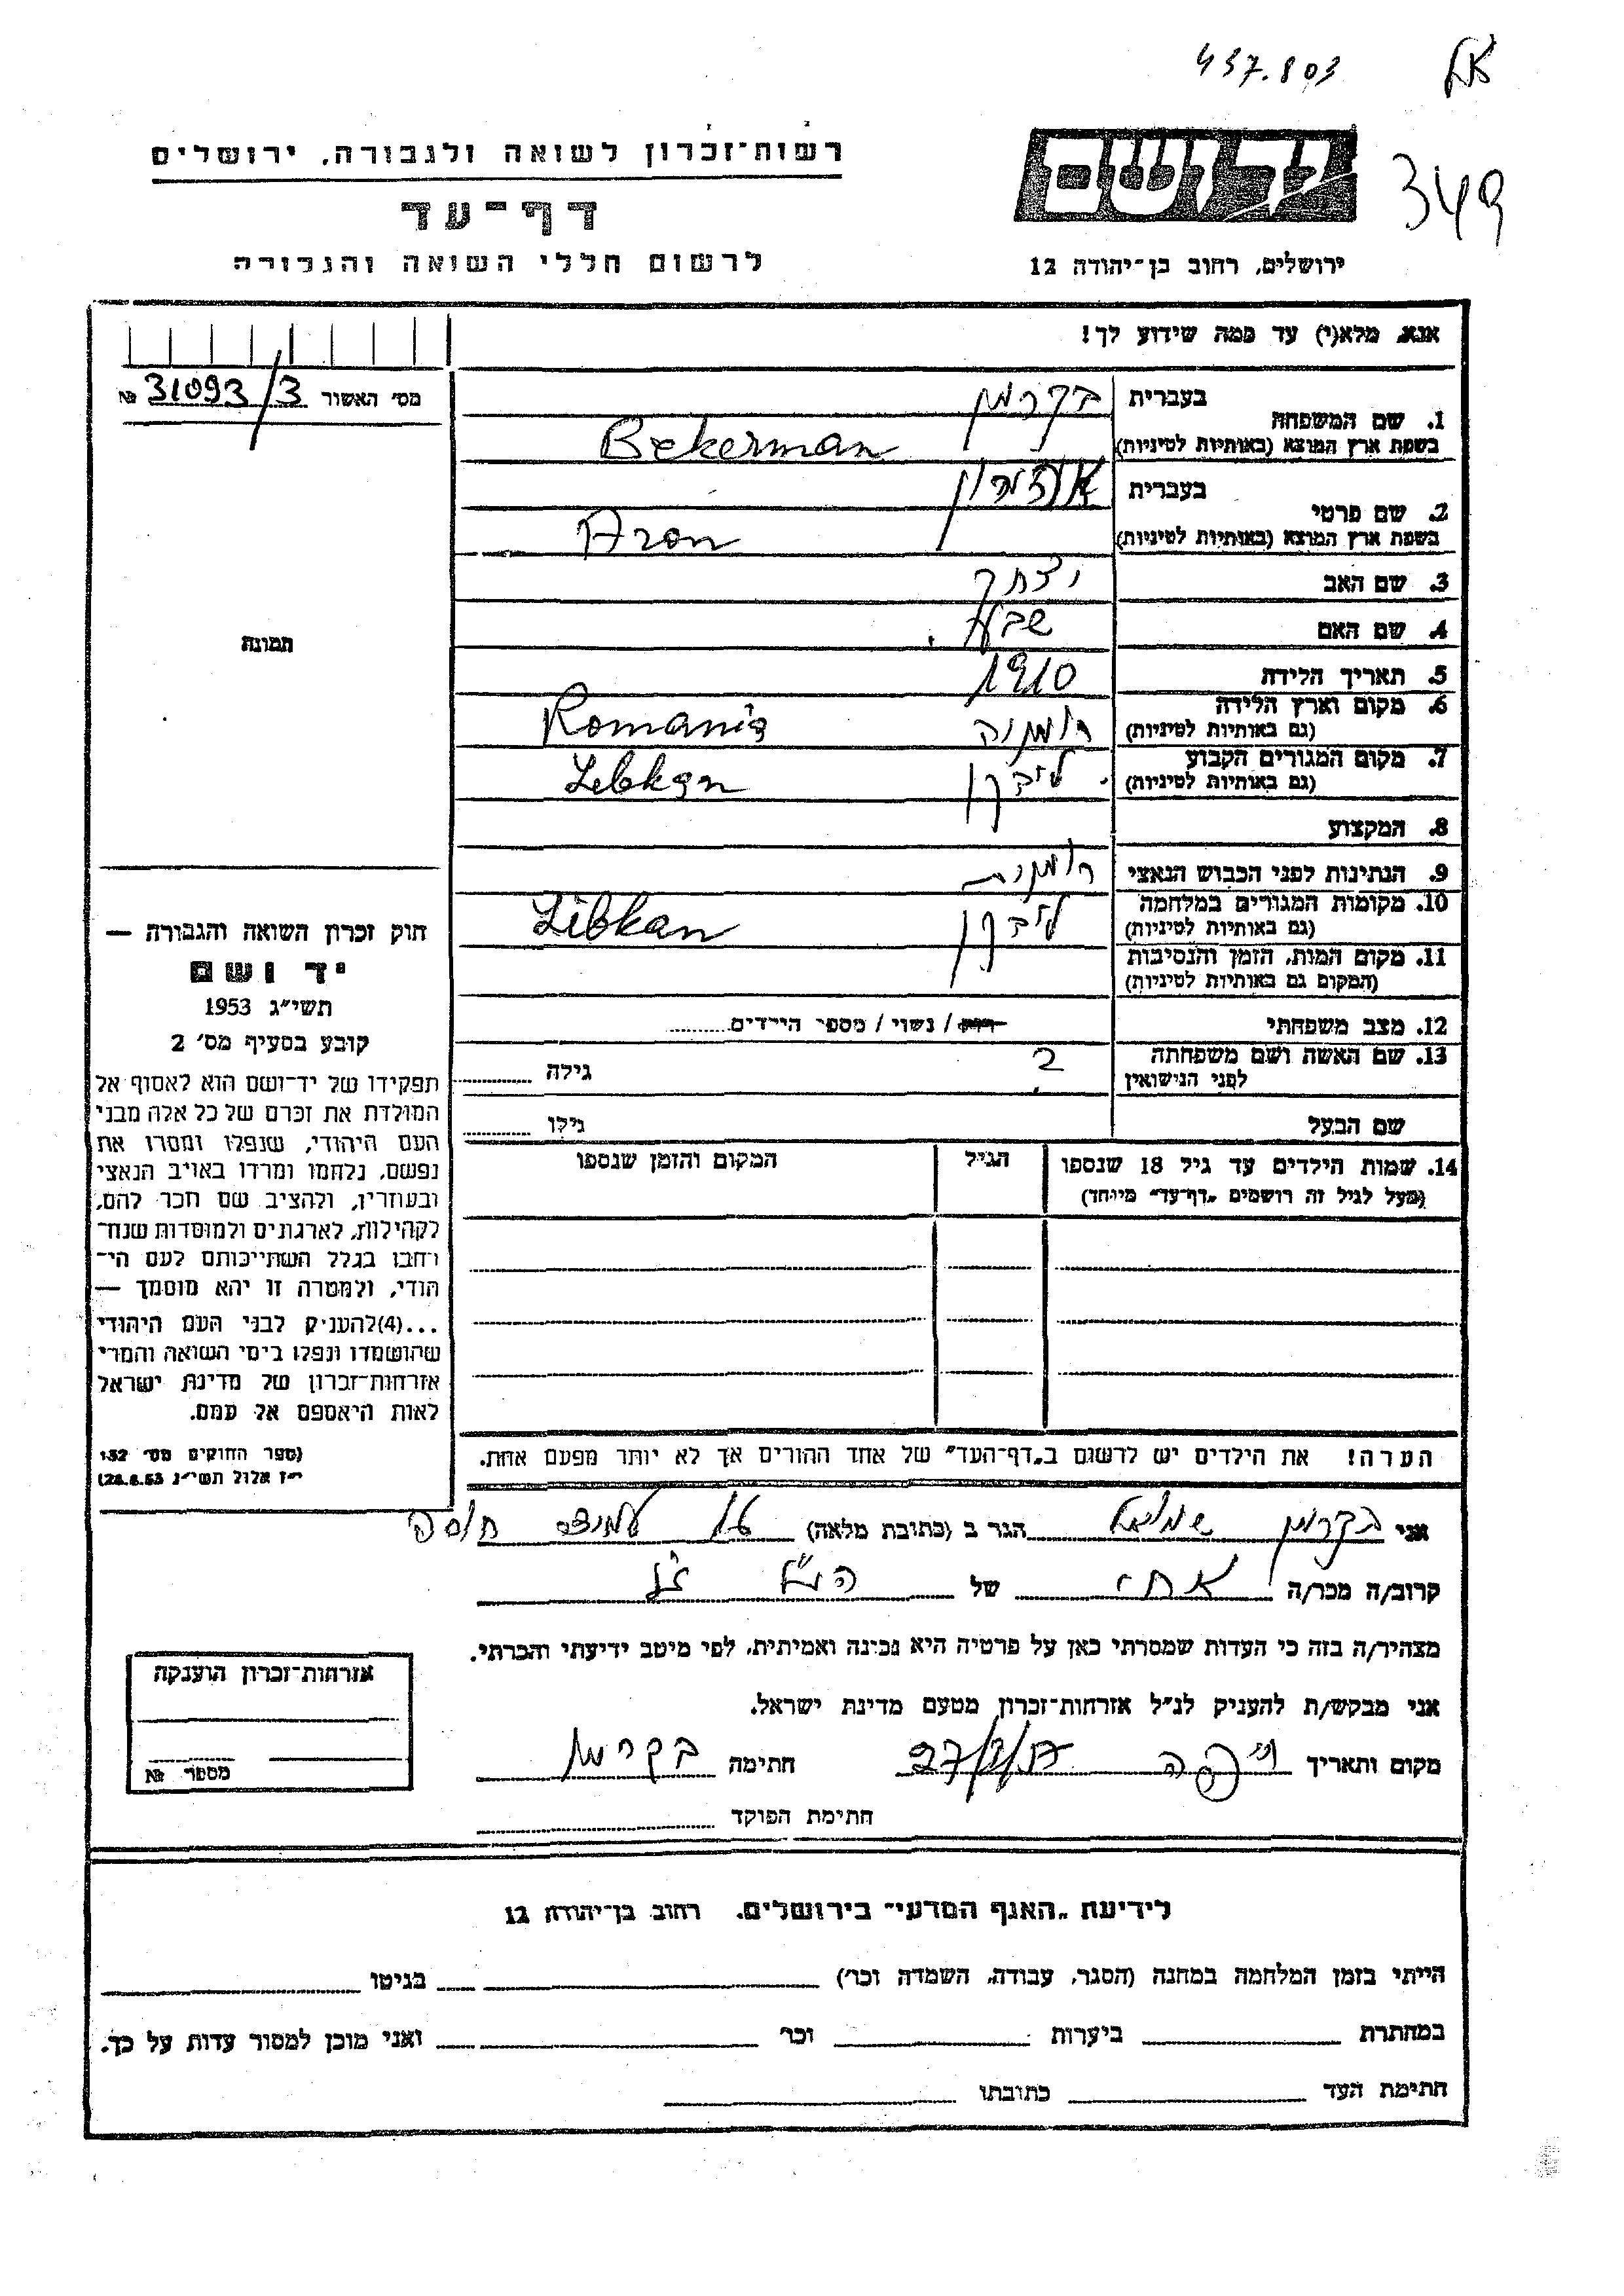 437.803
349
רשות־זכרון לשואה ולגבורה, ירושלים
דף־עד
לרשום חללי השואה והגבורה
יד ושם
ירושלים, רחוב בן־יהודה 12
אנא, מלא(י) עד כמה שידוע לך!
מס׳ האשור 31093/3 №
1. שם המשפחה
בעברית בקרמן
בשפת ארץ המוצא (באותיות לטיניות) Bekerman
2. שם פרטי
בעברית
בשפת ארץ המוצא (באותיות לטיניות) Aron
3. שם האב יצחק
4. שם האם שבע
5. תאריך הלידה 1910
6. מקום וארץ הלידה
(גם באותיות לטיניות) רומניה Romania
7. מקום המגורים הקבוע
(גם באותיות לטיניות) ליבקן Libkan
8. המקצוע
9. הנתינות לפני הכבוש הנאצי רומנית
10. מקומות המגורים במלחמה
(גם באותיות לטיניות) ליבקן Libkan
11. מקום המות, הזמן והנסיבות
(המקום גם באותיות לטיניות)
12. מצב משפחתי רווק / נשוי / מספר הילדים
13. שם האשה ושם משפחתה
לפני הנישואין ? גילה
שם הבעל גילו
14. שמות הילדים עד גיל 18 שנספו
(מעל לגיל זה רושמים „דף־עד״ מיוחד)
הגיל
המקום והזמן שנספו
הערה! את הילדים יש לרשום ב„דף־העד״ של אחד ההורים אך לא יותר מפעם אחת.
תמונה
חוק זכרון השואה והגבורה —
יד ושם
תשי״ג 1953
קובע בסעיף מס׳ 2
תפקידו של יד־ושם הוא לאסוף אל
המולדת את זכרם של כל אלה מבני
העם היהודי, שנפלו ומסרו את
נפשם, נלחמו ומרדו באויב הנאצי
ובעוזריו, ולהציב שם וזכר להם,
לקהילות, לארגונים ולמוסדות שנח־
רבו בגלל השתייכותם לעם הי־
הודי, ולמטרה זו יהא מוסמך —
...(4)להעניק לבני העם היהודי
שהושמדו ונפלו בימי השואה והמרי
אזרחות־זכרון של מדינת ישראל
לאות היאספם אל עמם.
(ספר החוקים מס׳ 132
י״ז אלול תשי״ג 28.8.53)
אני בקרמן שמואל הגר ב (כתובת מלאה)
קרוב/ה מכר/ה אחי של
מצהיר/ה בזה כי העדות שמסרתי כאן על פרטיה היא נכונה ואמיתית, לפי מיטב ידיעתי והכרתי.
אני מבקש/ת להעניק לנ״ל אזרחות־זכרון מטעם מדינת ישראל.
מקום ותאריך חיפה חתימה בקרמן
חתימת הפוקד
אזרחות־זכרון הוענקה
מספר №
לידיעת „האגף המדעי״ בירושלים, רחוב בן־יהודה 12
הייתי בזמן המלחמה במחנה (הסגר, עבודה, השמדה וכו׳) בגיטו
במחתרת ביערות וכו׳ ואני מוכן למסור עדות על כך.
חתימת העד כתובתו